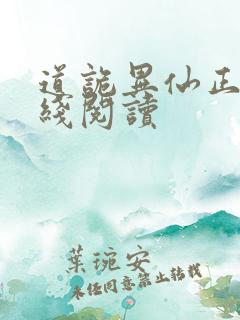 道詭異仙正
綫閱讀
葉琬安
未經同意禁止转载